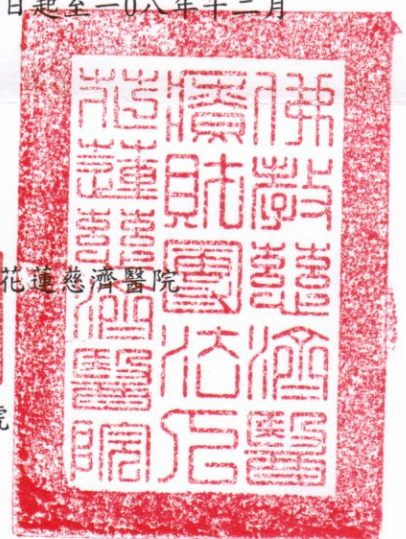 日起至一0八年十二月
佛教慈濟醫
療財團法人
花蓮慈濟醫院
花蓮慈濟醫院
號